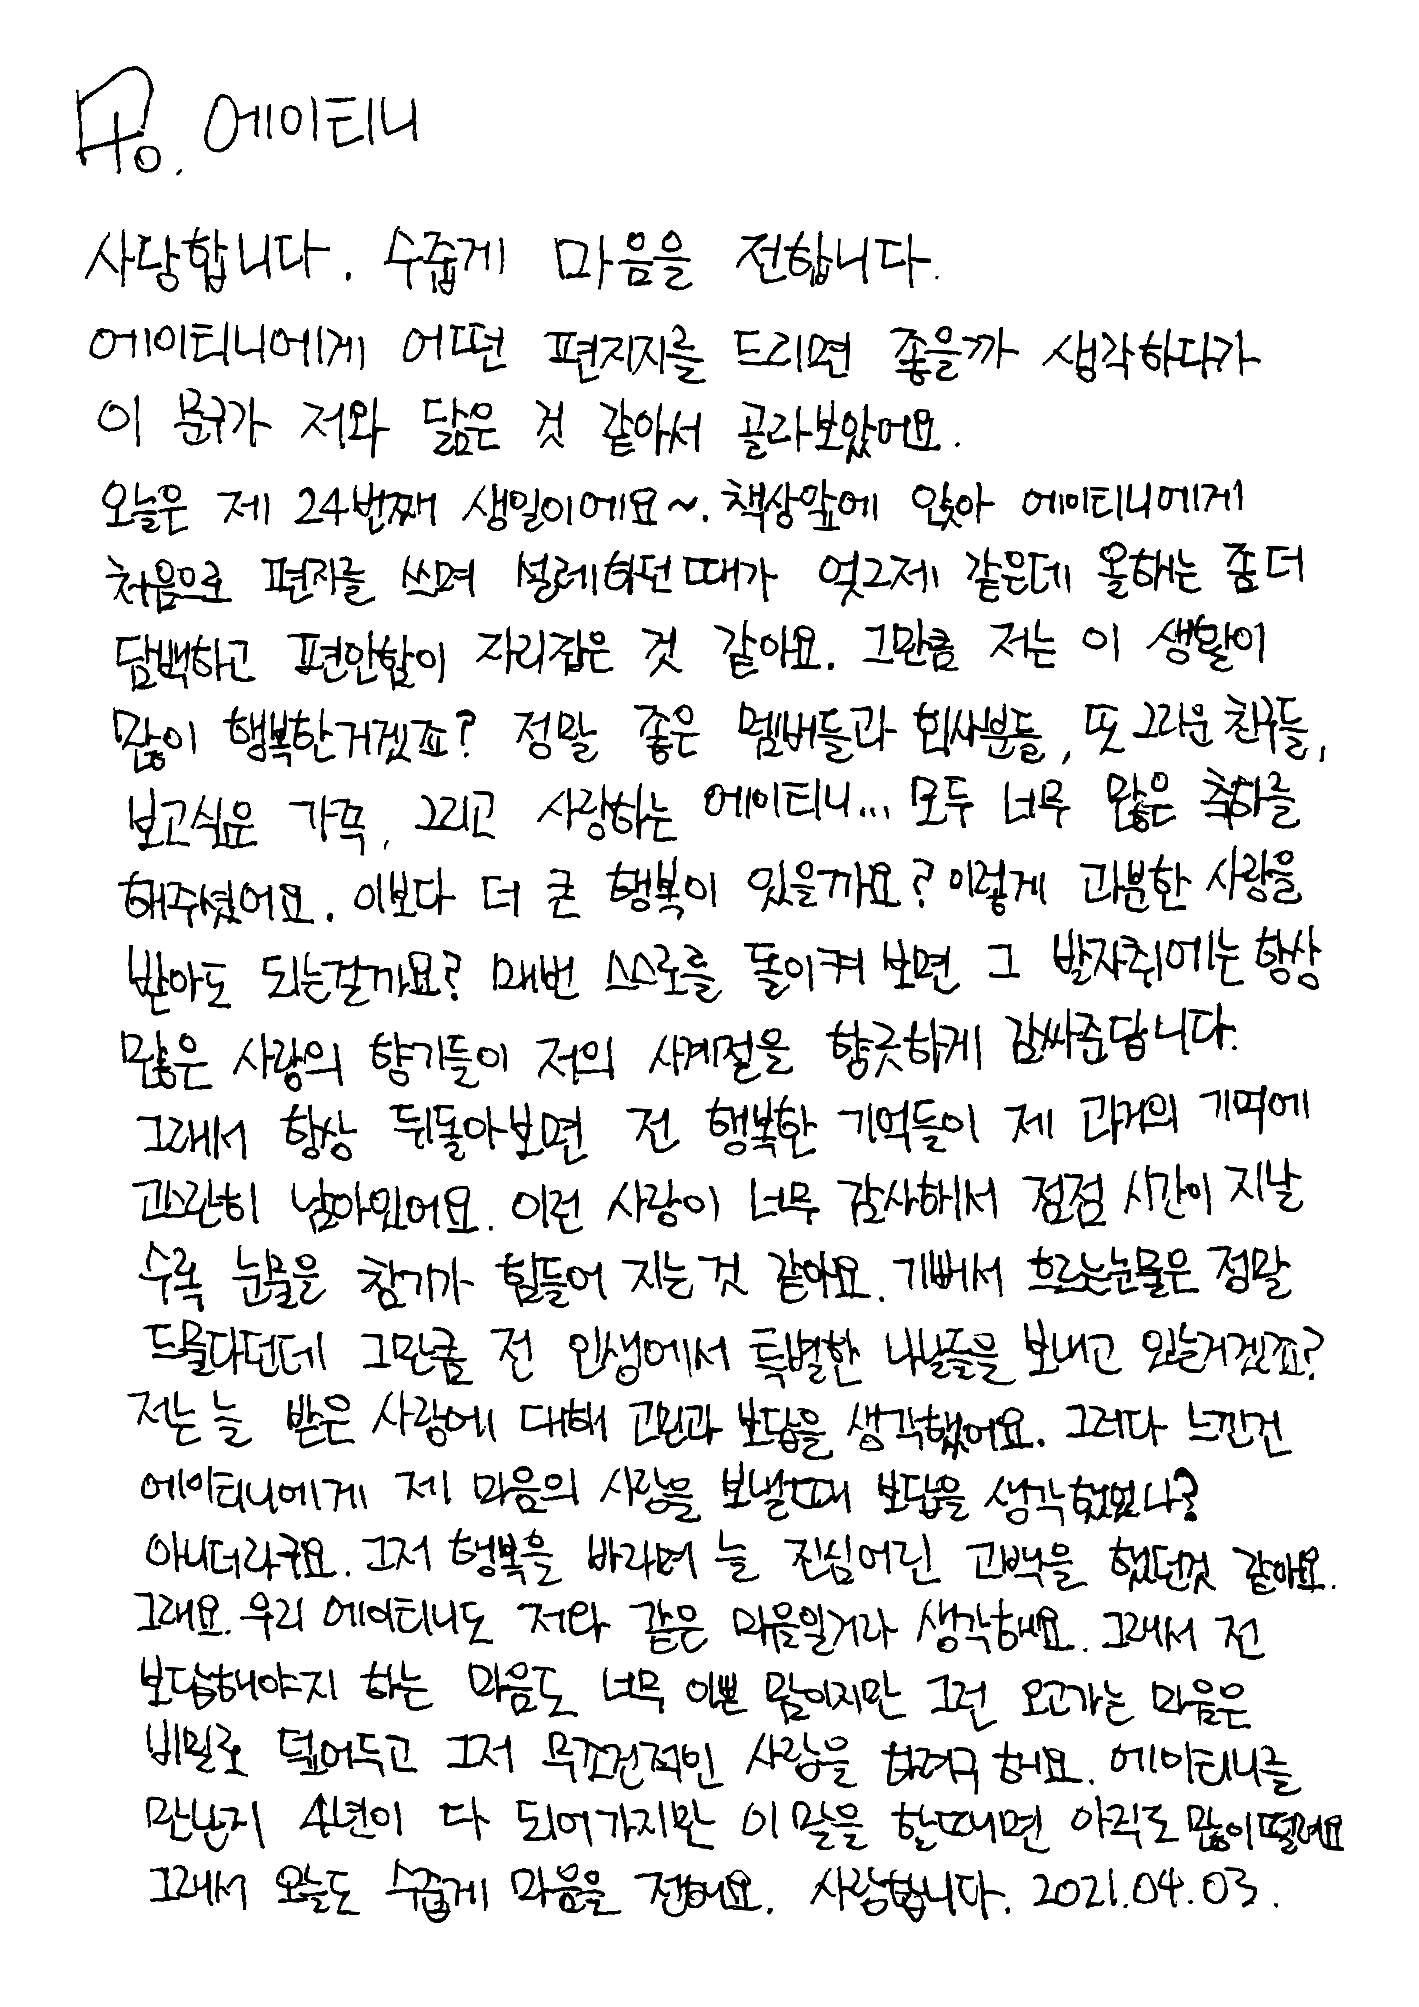 To. 에이티니
사랑합니다. 수줍게 마음을 전합니다.
에이티니에게 어떤 편지지를 드리면 좋을까 생각하다가
이 문구가 저와 닮은 것 같아서 골라보았어요.
오늘은 제 24번째 생일이에요~. 책상앞에 앉아 에이티니에게
처음으로 편지를 쓰며 설레하던때가 엊그제 같은데 올해는 좀더
담백하고 편안함이 자리잡은 것 같아요. 그만큼 저는 이 생활이
많이 행복한거겠죠? 정말 좋은 멤버들과 회사분들, 또 그리운 친구들,
보고싶은 가족, 그리고 사랑하는 에이티니... 모두 너무 많은 축하를
해주셨어요. 이보다 더 큰 행복이 있을까요? 이렇게 과분한 사랑을
받아도 되는걸까요? 매번 스스로를 돌이켜 보면 그 발자취에는 항상
많은 사랑의 향기들이 저의 사계절을 향긋하게 감싸준답니다.
그래서 항상 뒤돌아보면 전 행복한 기억들이 제 과거의 기억에
관란히 남아있어요. 이런 사랑이 너무 감사해서 점점 시간이 지날
수록 눈물은 참기가 힘들어 지는 것 같아요. 기뻐서 흐르는눈물은 정말
드물다던데 그만큼 전 인생에서 특별한 나날들을 보내고 있는거겠죠?
저는 늘 받은 사랑에 대해 고민과 보답을 생각했어요. 그러다 느낀건
에이티니에게 제 마음의 사랑을 보낼때 보답을 생각했었나?
아니더라구요. 그저 행복을 바라며 늘 진심어린 고백을 했던것 같아요.
그래요. 우리 에이티니도 저와 같은 마음일거라 생각해요. 그래서 전
보답해야지 하는 마음도 너무 이쁜 맘이지만 그런 오고가는 마음은
비밀로 덮어두고 그저 무조건적인 사랑을 하려구 해요. 에이티니를
만난지 4년이 다 되어가지만 이 말을 할때면 아직도 많이 떨려요
그래서 오늘도 수줍게 마음을 전해요. 사랑합니다. 2021.04.03.